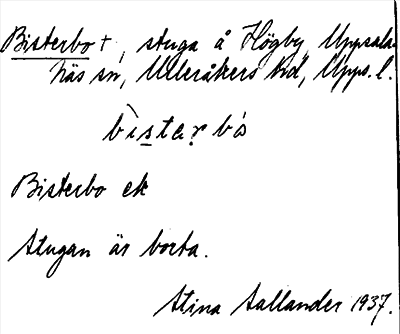 Bisterbo †, stuga å Högby, Uppsala-
näs sn, Ulleråkers hd, Upps. l.
bìstarbó
Bisterbo ek
Stugan är borta.
Stina Sallander 1937.